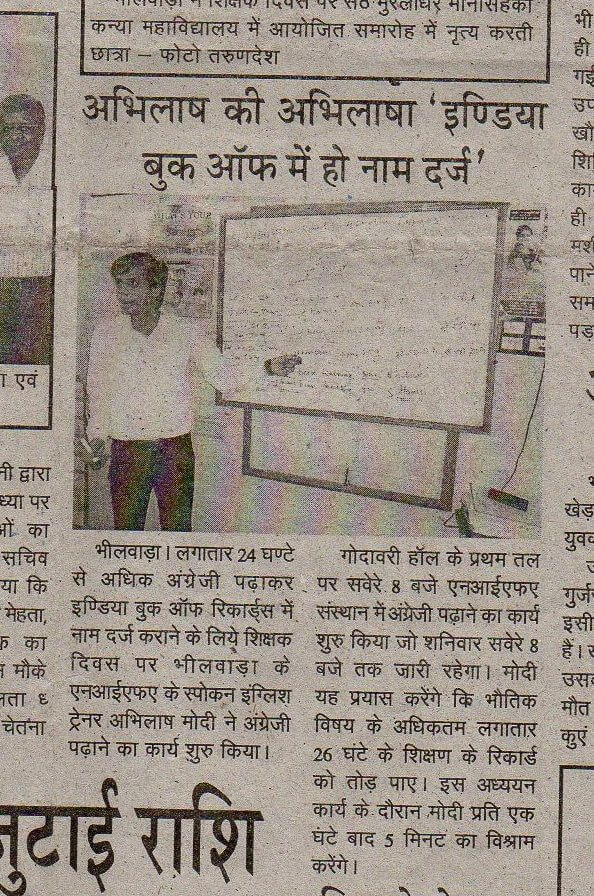 भीलवाड़ा में शिक्षक दिवस पर सेठ मुरलीधर मानसिंहका
कन्या महाविद्यालय में आयोजित समारोह में नृत्य करती
छात्रा – फोटो तरुणदेश
अभिलाष की अभिलाषा 'इण्डिया
बुक ऑफ में हो नाम दर्ज'
भीलवाड़ा। लगातार 24 घण्टे
से अधिक अंग्रेजी पढ़ाकर
इण्डिया बुक ऑफ रिकार्ड्स में
नाम दर्ज कराने के लिये शिक्षक
दिवस पर भीलवाड़ा के
एनआईएफए के स्पोकन इंग्लिश
ट्रेनर अभिलाष मोदी ने अंग्रेजी
पढ़ाने का कार्य शुरु किया।
गोदावरी हॉल के प्रथम तल
पर सवेरे 8 बजे एनआईएफए
संस्थान में अंग्रेजी पढ़ाने का कार्य
शुरु किया जो शनिवार सवेरे 8
बजे तक जारी रहेगा। मोदी
यह प्रयास करेंगे कि भौतिक
विषय के अधिकतम लगातार
26 घंटे के शिक्षण के रिकार्ड
को तोड़ पाए। इस अध्ययन
कार्य के दौरान मोदी प्रति एक
घंटे बाद 5 मिनट का विश्राम
करेंगे।
ा एवं
नी द्वारा
ध्या पर
ओं का
सचिव
या कि
मेहता,
क का
मौके
लता ध
चेतना
जुटाई राशि
भी
ही
गई
उप
खौ
शि
का
ही
मर्श
पाने
सम
पड़
खेड़
युवक
गुर्ज
इसी
हैं।
उसव
मौत
कुएं